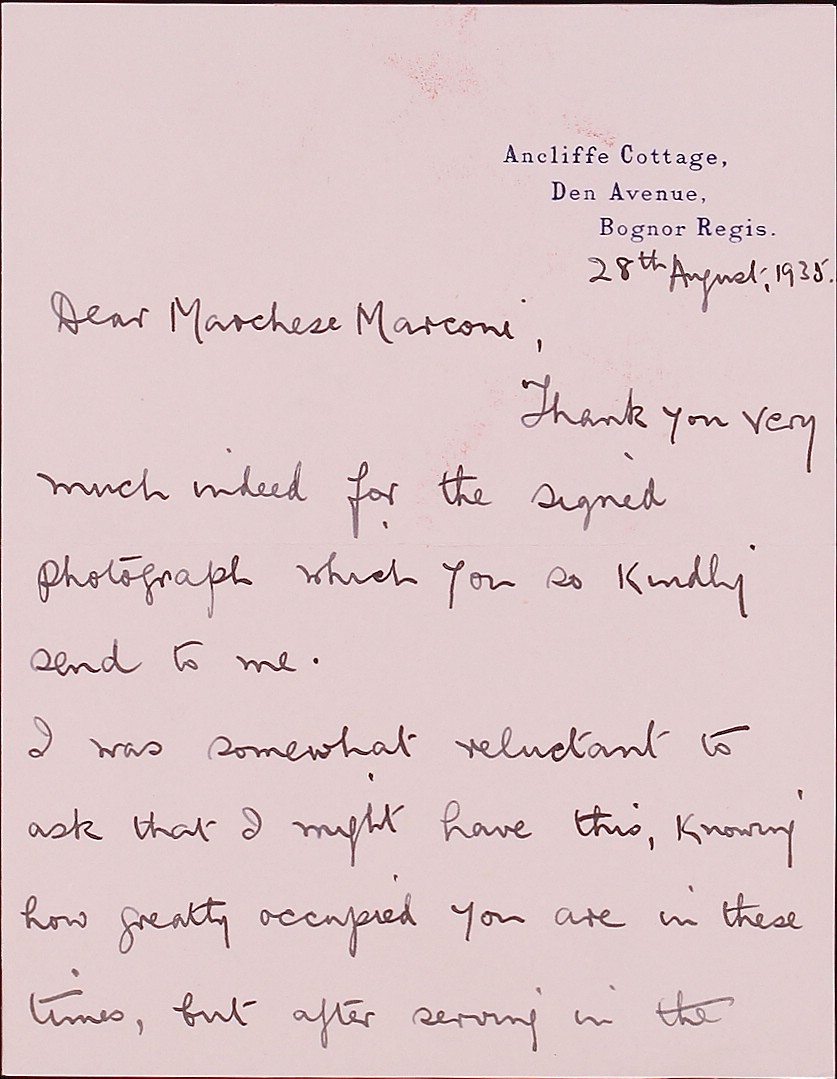 Ancliffe Cottage,
Den Avenue,
Bognor Regis.
28th August, 1935.
Dear Marchese Marconi,
Thank you very
much indeed for the signed
photograph which you so kindly
send to me.
I was somewhat reluctant to
ask that I might have this, knowing
how greatly occupied you are in these
times, but after serving in the